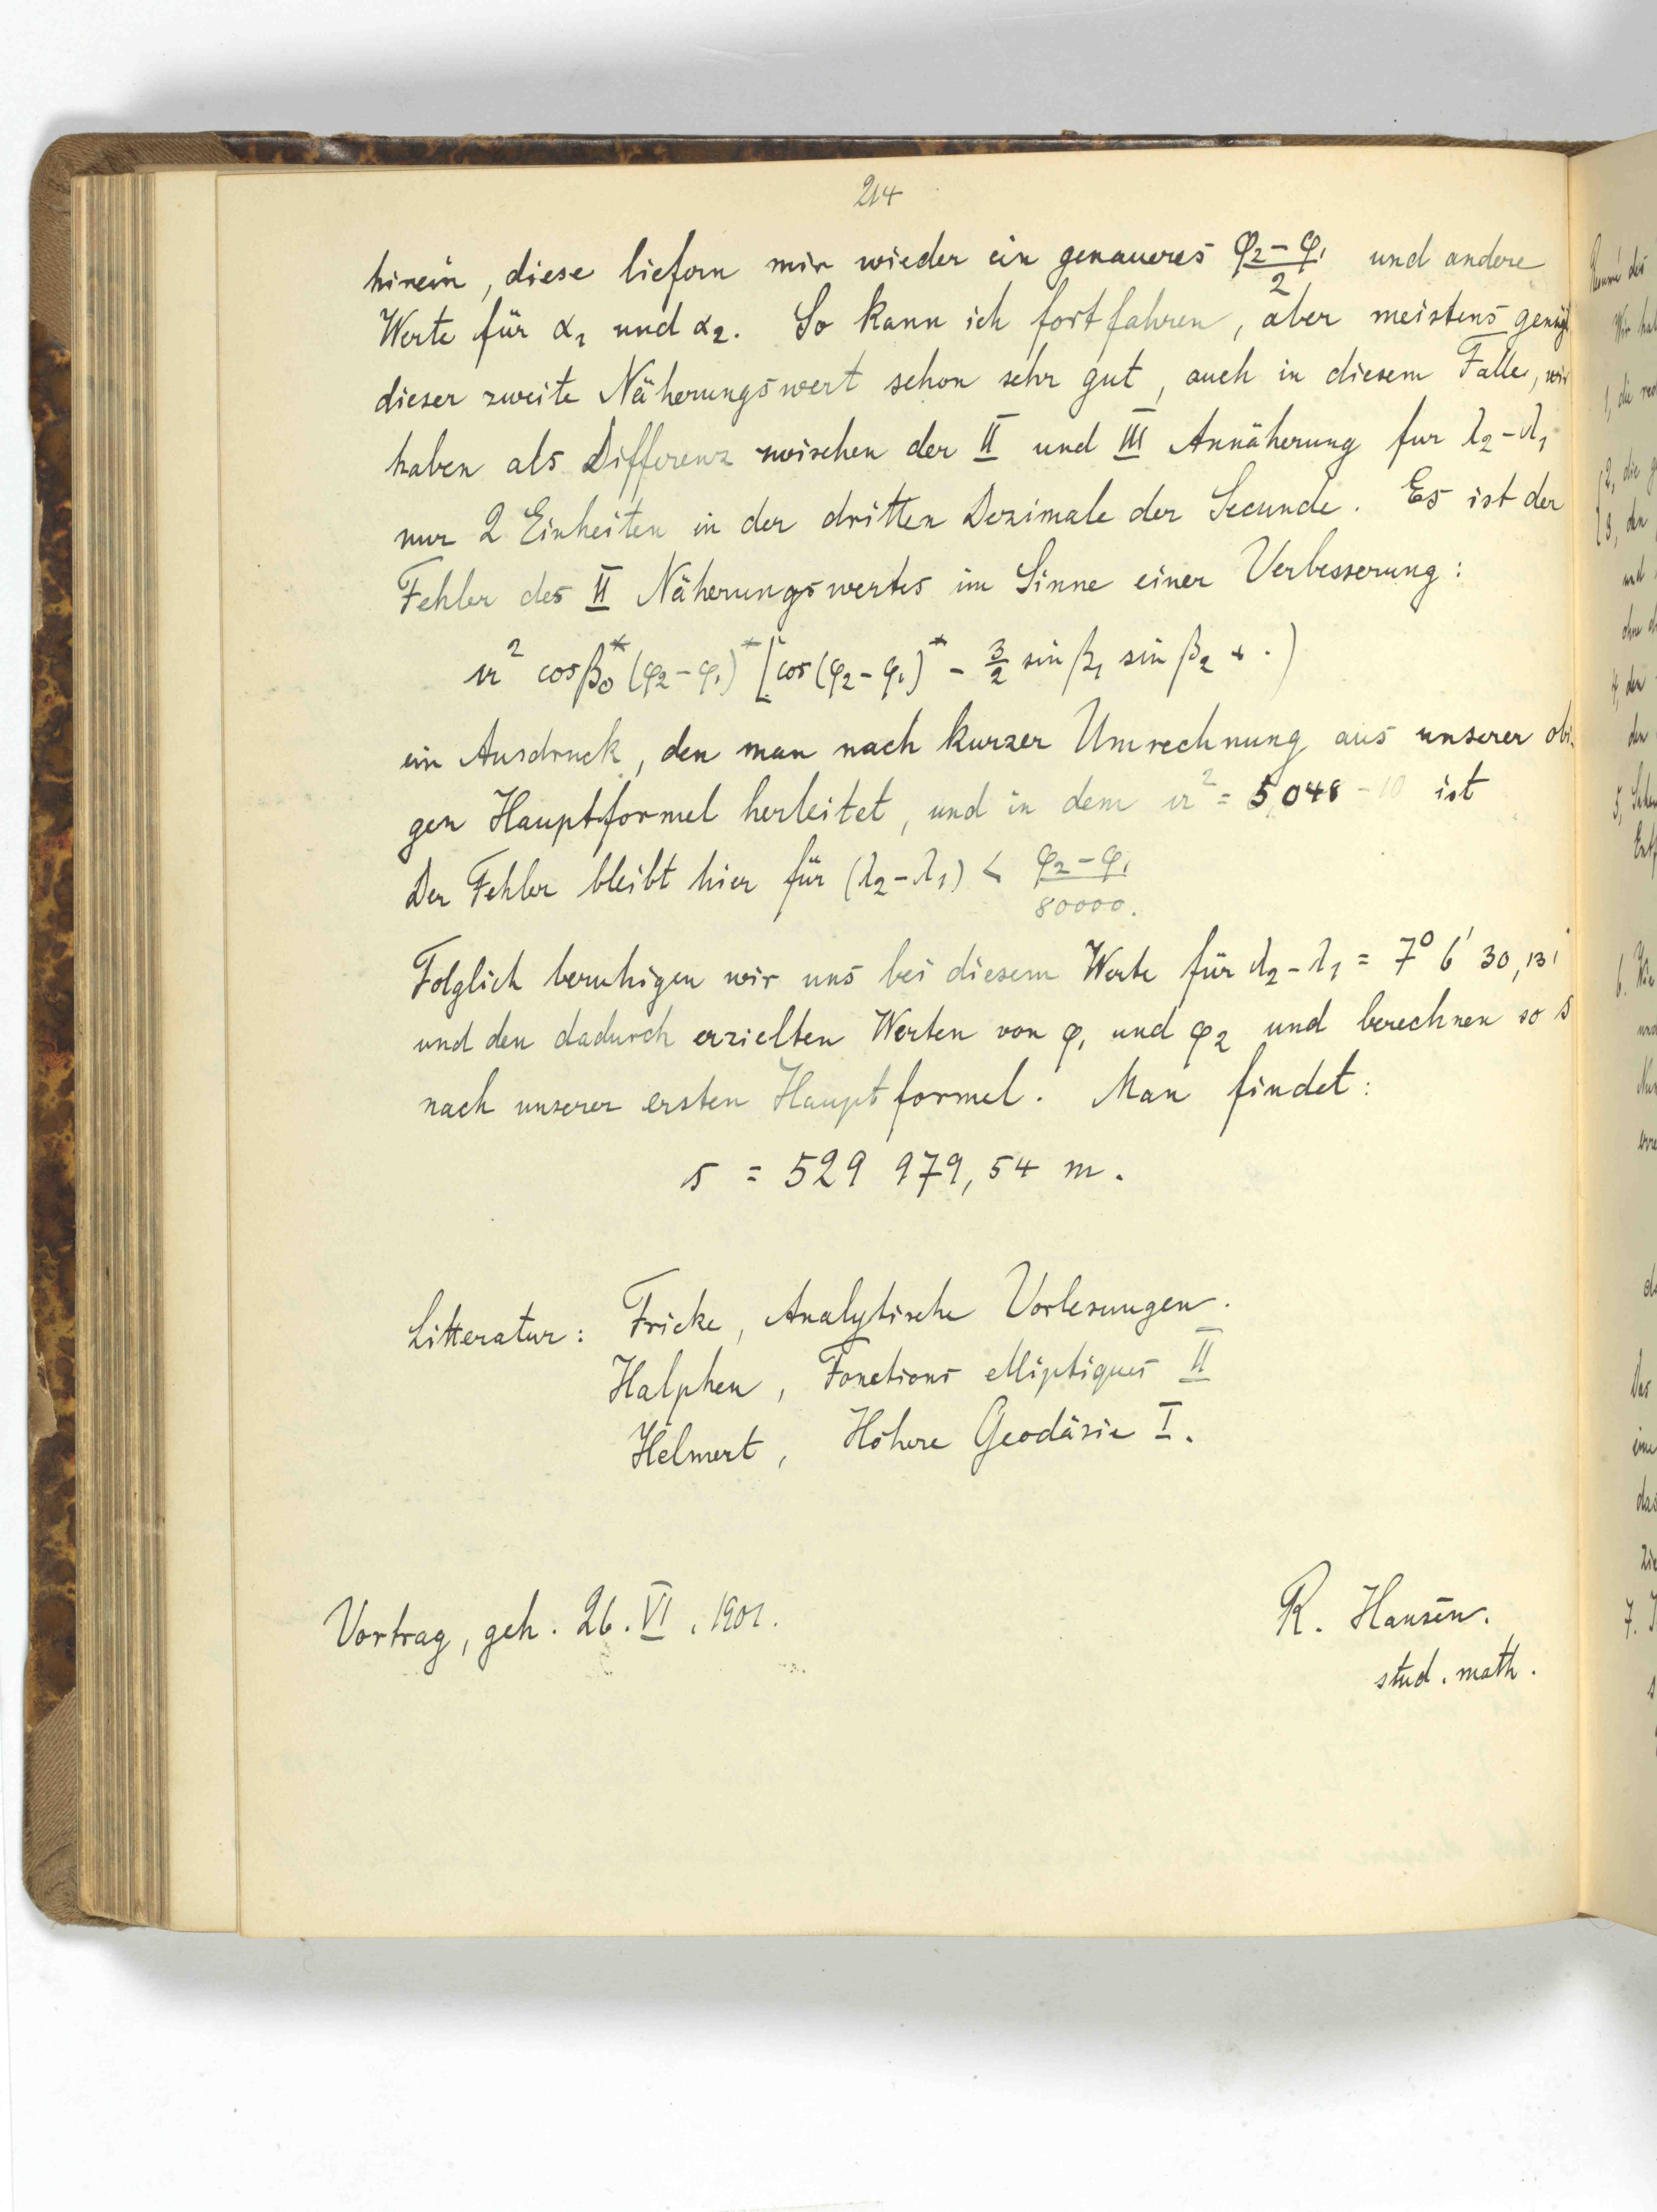 214
hinein, diese liefern mir wieder ein genaueres (φ₂ - φ₁)/2 und andere
Werte für α₁ und α₂. So kann ich fortfahren, aber meistens genügt
dieser zweite Näherungswert schon sehr gut, auch in diesem Falle, wir
haben als Differenz zwischen der II und III Annäherung fur λ₂-λ₁
nur 2 Einheiten in der dritten Dezimale der Secunde. Es ist der
Fehler des II Näherungswertes im Sinne einer Verbesserung:
² cos β₀* (φ₂-φ₁)* [cos (φ₂-φ₁)* - 3/2 sin β₁ sin β₂ + ·)
ein Ausdruck, den man nach kurzer Umrechnung aus unserer obi-
gen Hauptformel herleitet, und in dem ² = 5,048 - 10 ist
Der Fehler bleibt hier für (λ₂-λ₁) < (φ₂-φ₁)/80000.
Folglich beruhigen wir uns bei diesem Werte für λ₂-λ₁ = 7° 6' 30,131
und den dadurch erzielten Werten von φ₁ und φ₂ und berechnen so s
nach unserer ersten Hauptformel. Man findet:
s = 529 979,54 m.
Litteratur: Fricke, Analytische Vorlesungen.
Halphen, Fonctions elliptiques II
Helmert, Höhere Geodäsie I.
Vortrag, geh. 26. VI. 1901.
R. Hansen.
stud. math.